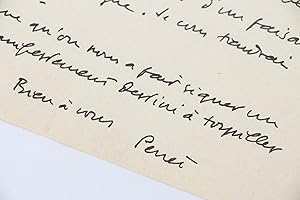 d'un faisan
que. Je vous tiendrai
ue qu'on nous a fait signer un
manifestement destiné à torpiller
Bien à vous
Perret